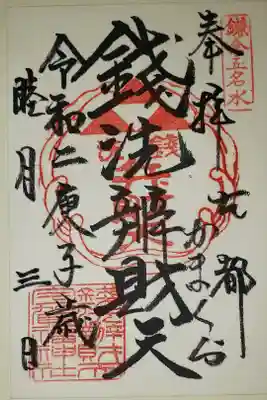 鎌倉五名水
奉拝
古都
かまくら
錢洗辨財天
令和二庚子歳
睦月三日